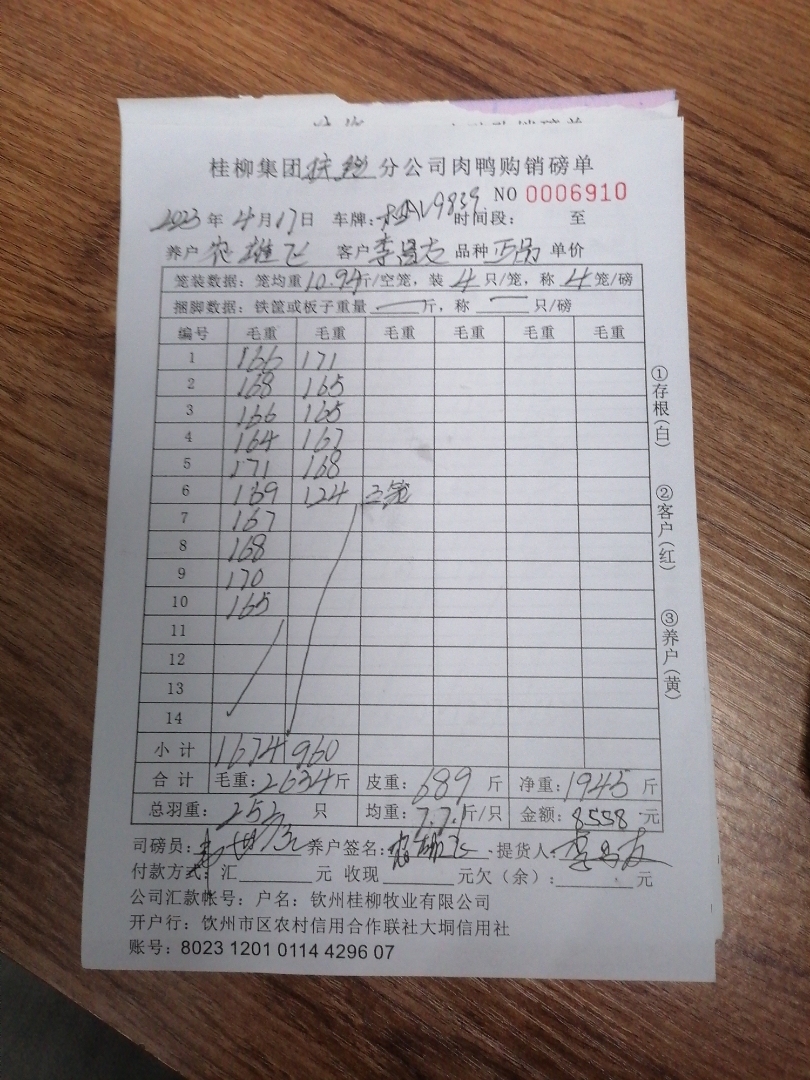 桂柳集团扶绥分公司肉鸭购销磅单
NO 0006910
2023年4月17日 车牌: 时间段: 至
养户 农雄飞 客户 李昌友 品种 正品 单价
笼装数据: 笼均重10.94斤/空笼, 装4只/笼, 称4笼/磅
捆脚数据: 铁筐或板子重量 — 斤, 称 — 只/磅
编号 毛重 毛重 毛重 毛重 毛重 毛重
1 166 171
2 168 165
3 166 165
4 164 167
5 171 168
6 169 124 三笼
7 167
8 168
9 170
10 165
11
12
13
14
小计 1674 960
合计 毛重: 2634斤 皮重: 689斤 净重: 1945斤
总羽重: 252只 均重: 7.71斤/只 金额: 8558元
司磅员: 养户签名: 农雄飞 提货人: 李昌友
付款方式: 汇 元 收现 元欠(余): 元
公司汇款帐号: 户名: 钦州桂柳牧业有限公司
开户行: 钦州市区农村信用合作联社大垌信用社
账号: 8023 1201 0114 4296 07
①存根(白)
②客户(红)
③养户(黄)